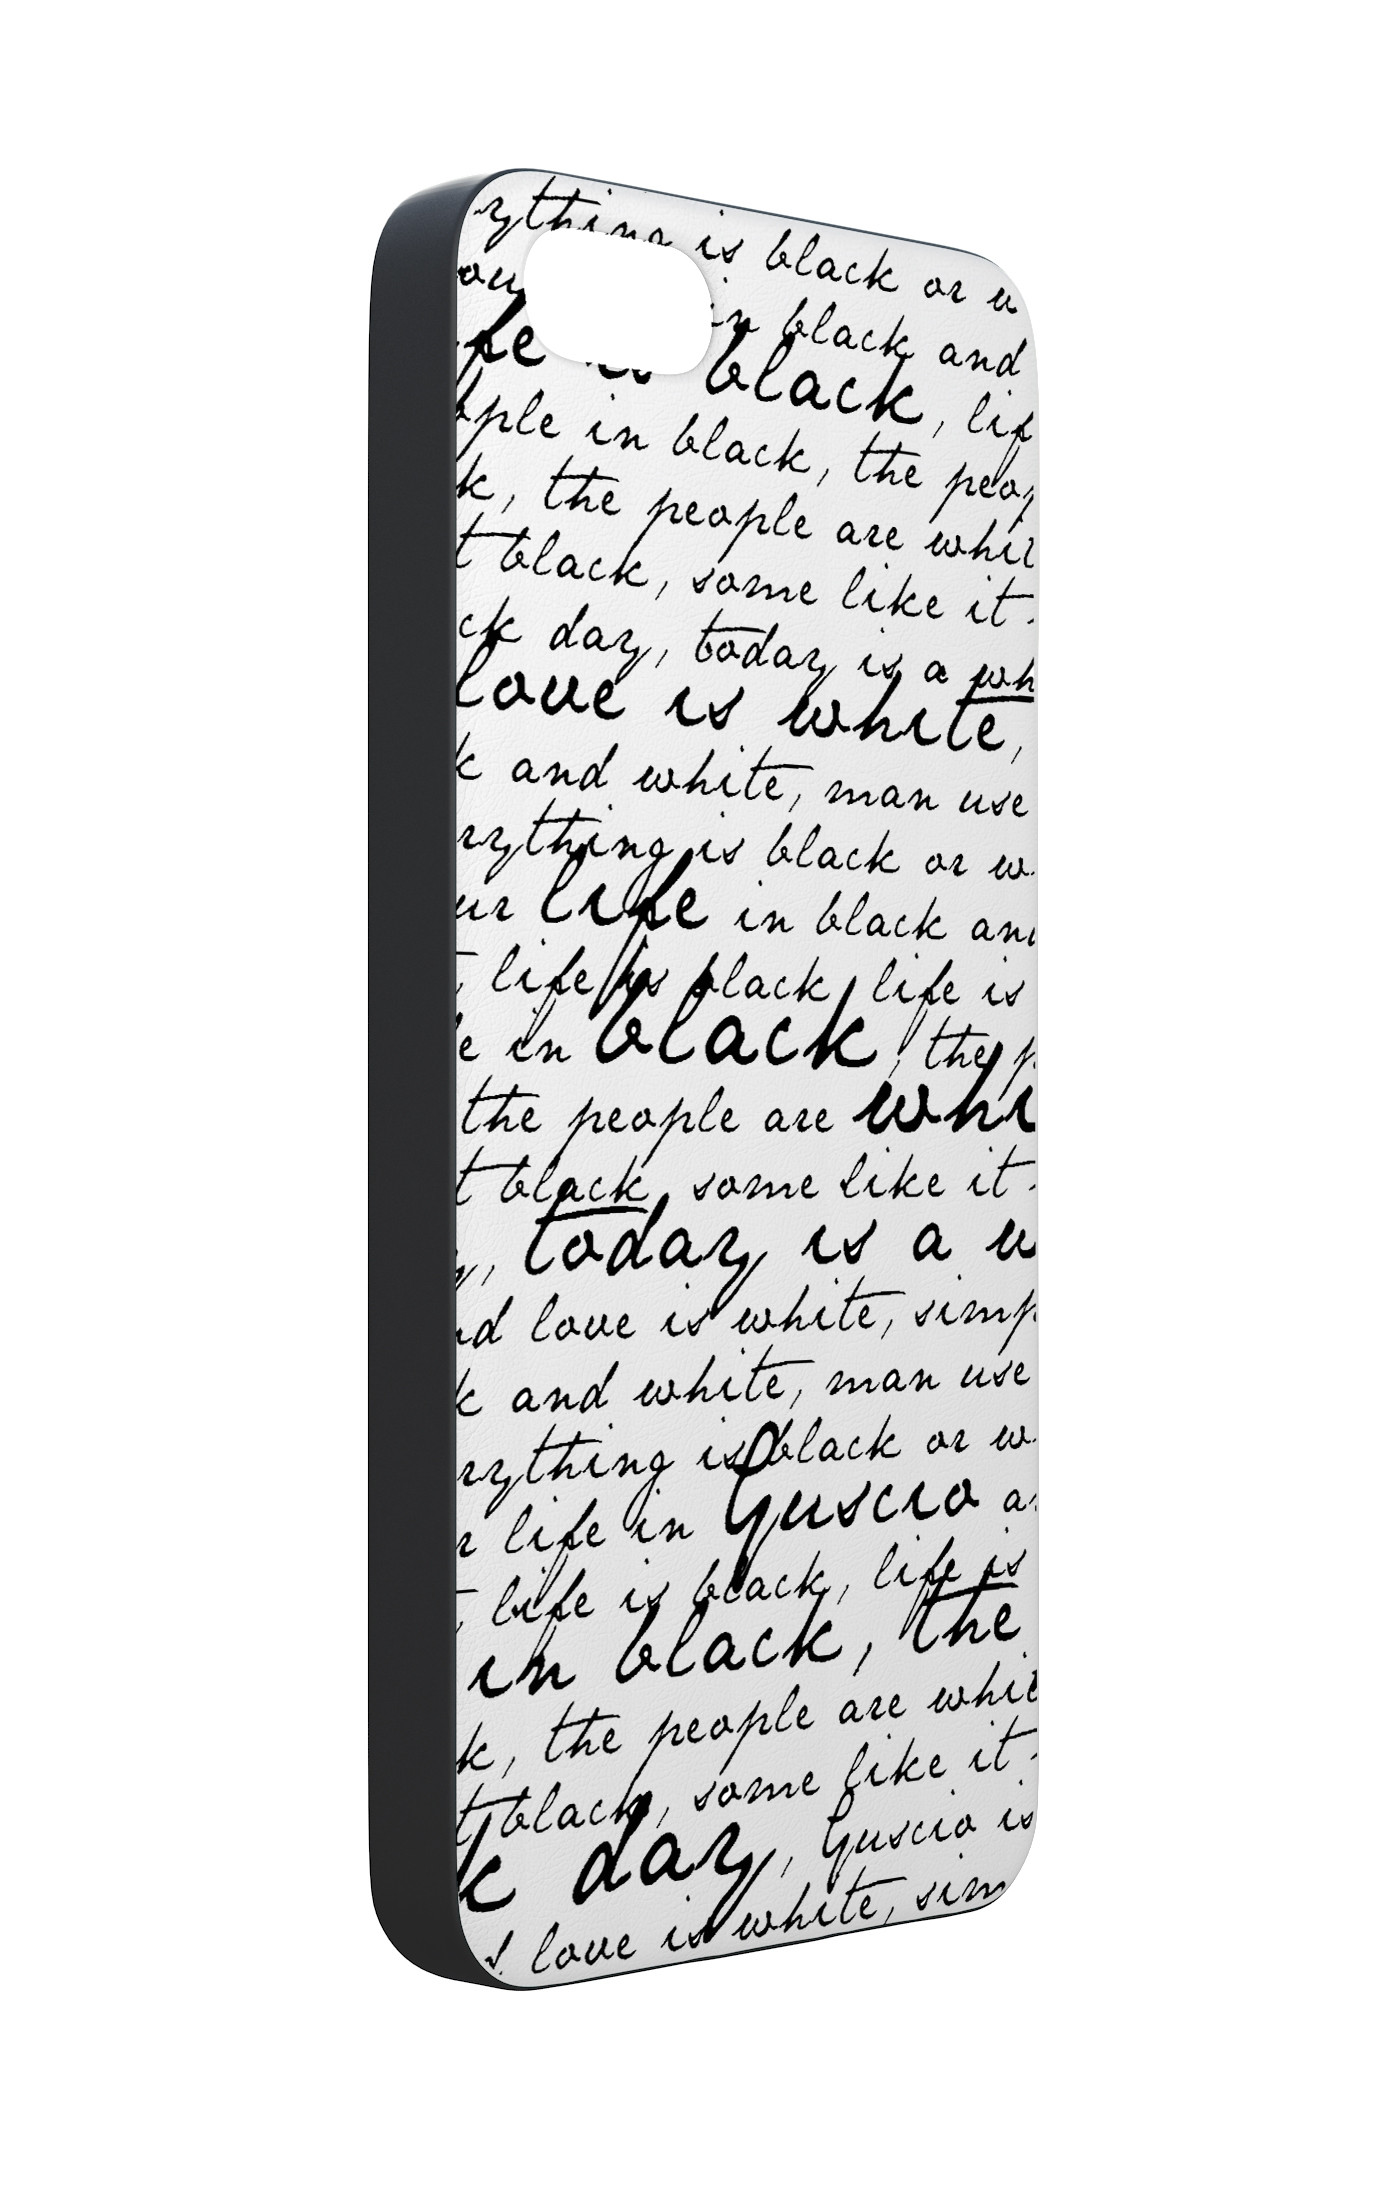 rything is black or w
our in black and
fe is black, lif
ople in black, the peop
k, the people are whit
t black, some like it
ck day, today is a wh
love is white,
k and white, man use
rything is black or w
ur life in black and
life is black, life is
e in black, the p
the people are whi
t black, some like it
y, today is a w
nd love is white, simp
k and white, man use
rything is black or w
r life in Guscio a
life is black, life is
in black, the
k, the people are whit
t black, some like it
k day, Guscio is
love is white, sim